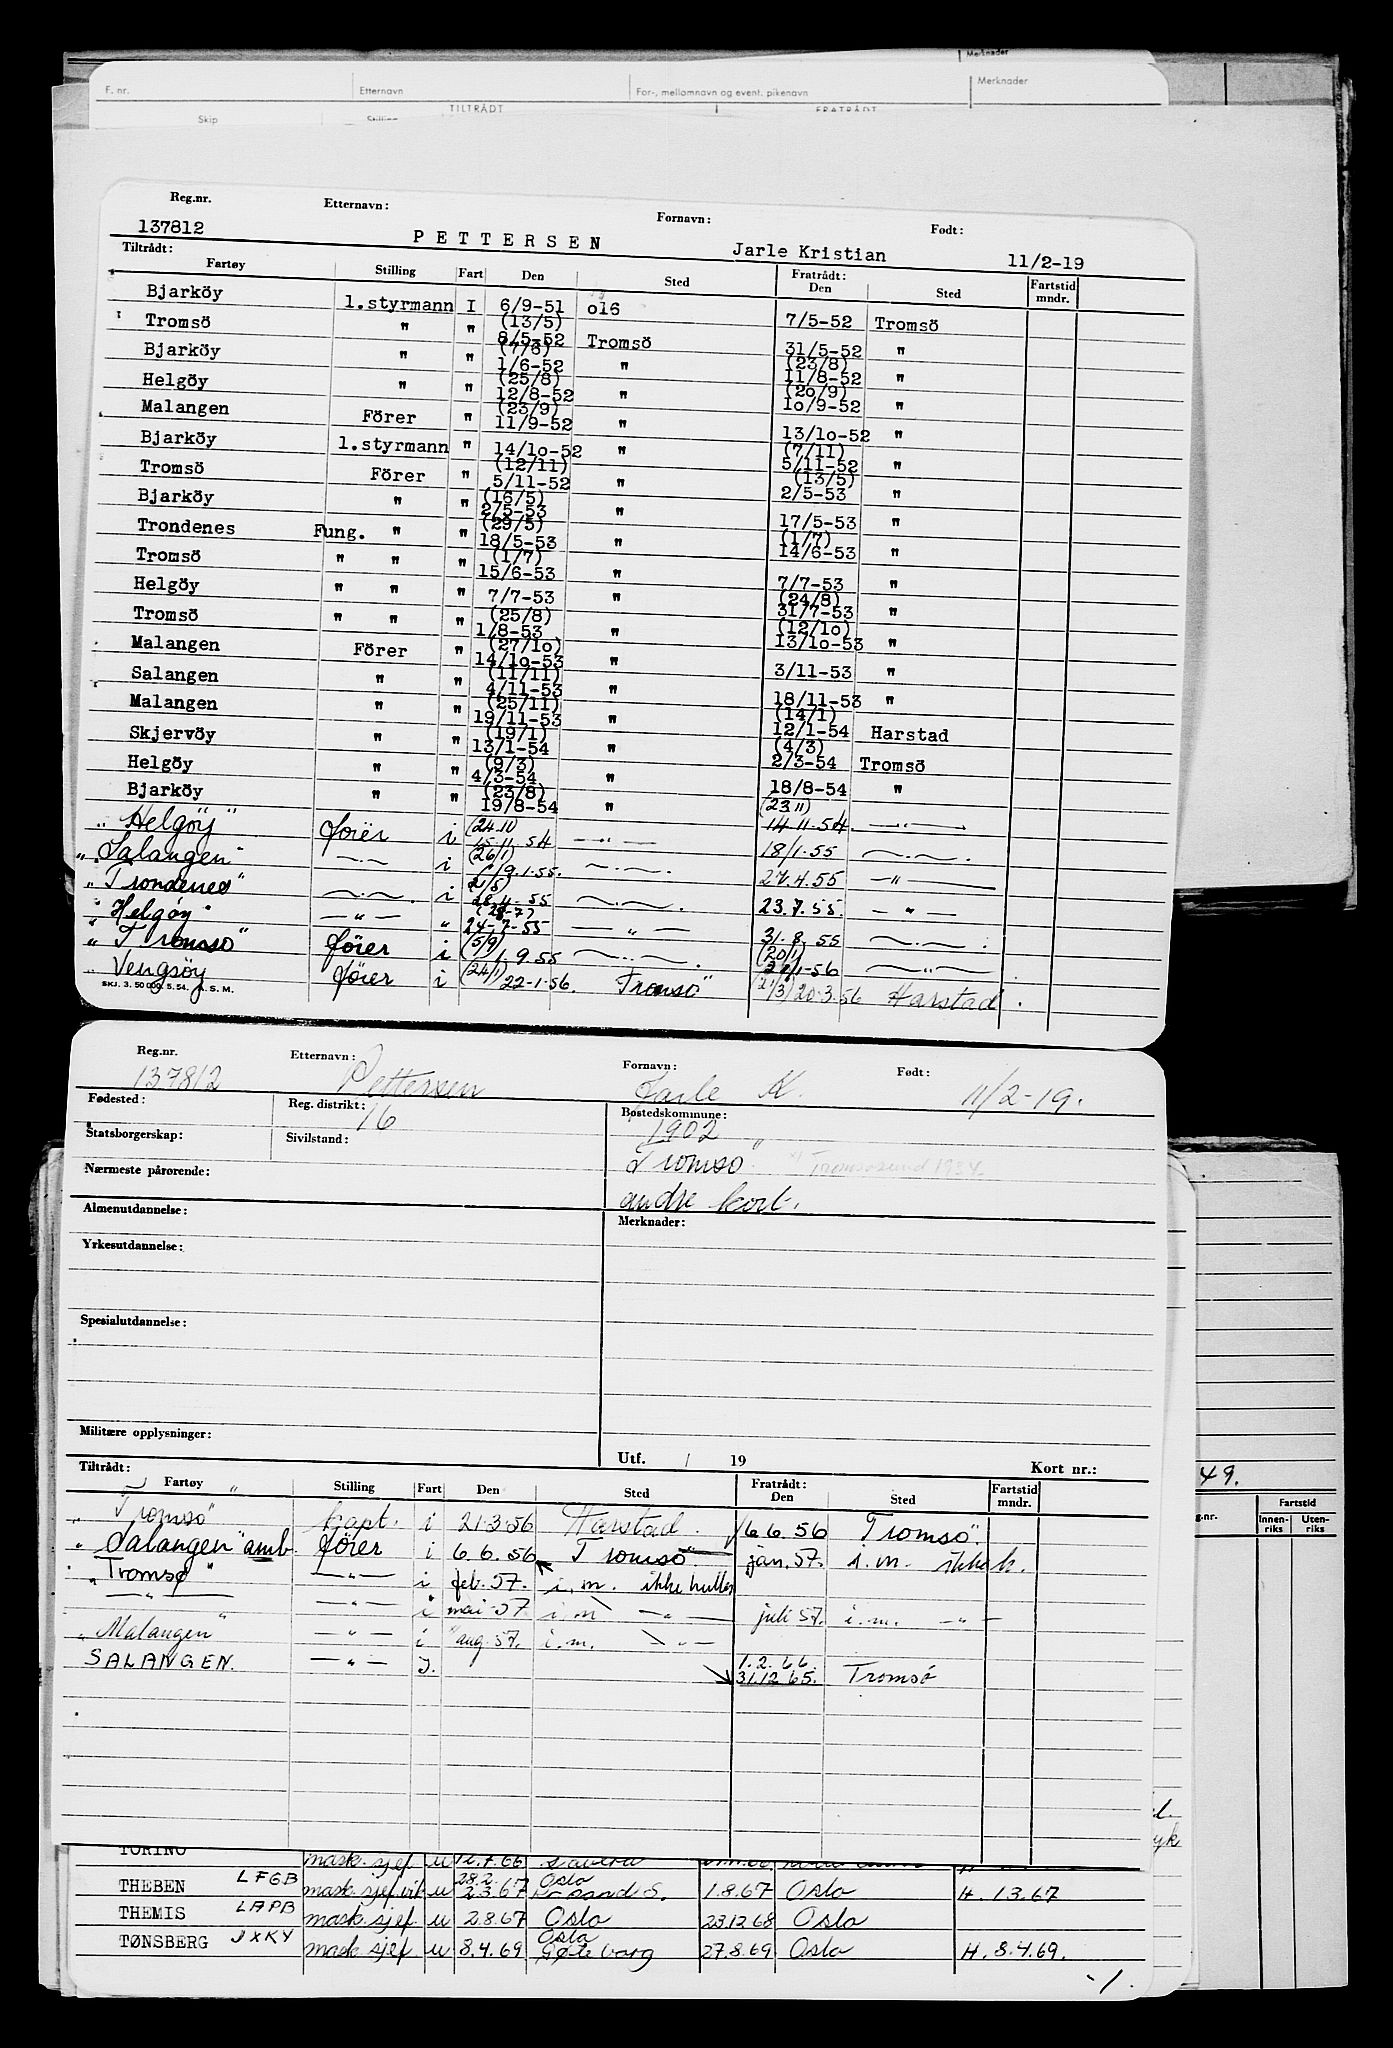 Merknader
F. nr. Etternavn For-, mellomnavn og event. pikenavn Merknader
TILTRÅDT FRATRÅDT
Skip Stilling
Reg.nr. Etternavn: Fornavn: Født:
137812 PETTERSEN Jarle Kristian 11/2-19
Tiltrådt: Fratrådt:
Fartøy Stilling Fart Den Sted Den Sted Fartstid mndr.
Bjarköy 1.styrmann I 6/9-51 o16 7/5-52 Tromsö
Tromsö " " (13/5) 8/5-52 Tromsö 31/5-52 "
Bjarköy " " (7/6) 1/6-52 " (23/8) 11/8-52 "
Helgöy " " (25/8) 12/8-52 " (20/9) 1o/9-52 "
Malangen Förer " (23/9) 11/9-52 " 13/1o-52 "
Bjarköy 1.styrmann " 14/1o-52 " (7/11) 5/11-52 "
Tromsö Förer " (12/11) 5/11-52 " (13/5) 2/5-53 "
Bjarköy " " (16/5) 2/5-53 " 17/5-53 "
Trondenes Fung. " " (29/5) 18/5-53 " (1/7) 14/6-53 "
Tromsö " " " (1/7) 15/6-53 " 7/7-53 "
Helgöy " " " 7/7-53 " (24/8) 31/7-53 "
Tromsö " " " (25/8) 1/8-53 " (12/1o) 13/1o-53 "
Malangen Förer " (27/1o) 14/1o-53 " 3/11-53 "
Salangen " " (11/11) 4/11-53 " 18/11-53 "
Malangen " " (25/11) 19/11-53 " (14/1) 12/1-54 Harstad
Skjervöy " " (19/1) 13/1-54 " (4/3) 2/3-54 Tromsö
Helgöy " " (9/3) 4/3-54 " 18/8-54 "
Bjarköy " " (23/8) 19/8-54 " (23 11) 14.11.54. — " —
" Helgöy " förer i (24.11) 15.11.54 — " — 18/1.55 — " —
" Salangen " — " — i (26/1) 19.1.55. — " — 27.4.55 — " —
" Trondenes " — " — i (2/5) 28.4.55 — " — 23.7.55. — " —
" Helgöy " — " — " (28-7) 24-7-55 — " — 31.8.55 — " —
" Tromsö " förer i (5/9) 1.9.55 — " — (20/1) 21/1-56 — " —
" Vengsöy förer i (24/1) 22-1-56. Tromsö" 20.3.56 Harstad.
SKJ. 3. 50 000. 5.54. A.S.M.
Reg.nr. Etternavn: Fornavn: Født:
137812 Pettersen Jarle K. 11/2-19.
Fødested: Reg. distrikt: 16 Bostedskommune: 1902
Statsborgerskap: Sivilstand: Tromsö" x) Tromsøsund 1934.
Nærmeste pårørende: andre kort.
Almenutdannelse: Merknader:
Yrkesutdannelse:
Spesialutdannelse:
Militære opplysninger:
Utf. / 19
Tiltrådt: Fratrådt: Kort nr.:
Fartøy Stilling Fart Den Sted Den Sted Fartstid mndr.
" Tromsö " kapt. i 21.3.56 Harstad. 6.6.56 Tromsö".
" Salangen" amb. förer i 6.6.56 Tromsö". jan.57. i.m. ikke k.
" Tromsø " — " — i feb.57. i.m. ikke huller
— " — — " — i mai.57 i.m — " — juli 57. i.m. — " —
" Malangen " — " — i aug.57. i.m. — " —
SALANGEN. — " — I. 1.2.66. 31.12 65. Tromsö
TORINO mask. sjef u
THEBEN LFGB mask. sjef u 28.2. 2.3.67 Oslo 1.8.67 Oslo H. 1.3.67
THEMIS LAPB mask. sjef u 2.8.67 Oslo 23.12.68 Oslo
TØNSBERG JXKY mask. sjef u 8.4.69 Oslo Gøteborg 27.8.69 Oslo H. 8.4.69.
-/.
49.
Fartstid
Innenriks Utenriks